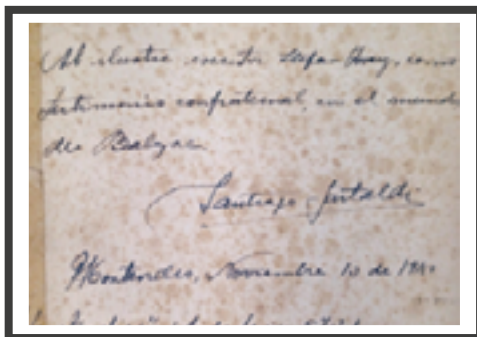 Al ilustre escritor Stefan Zweig, como
testimonio confraternal, en el mundo
de Balzac.
Santiago
Montevideo, Noviembre 10 de